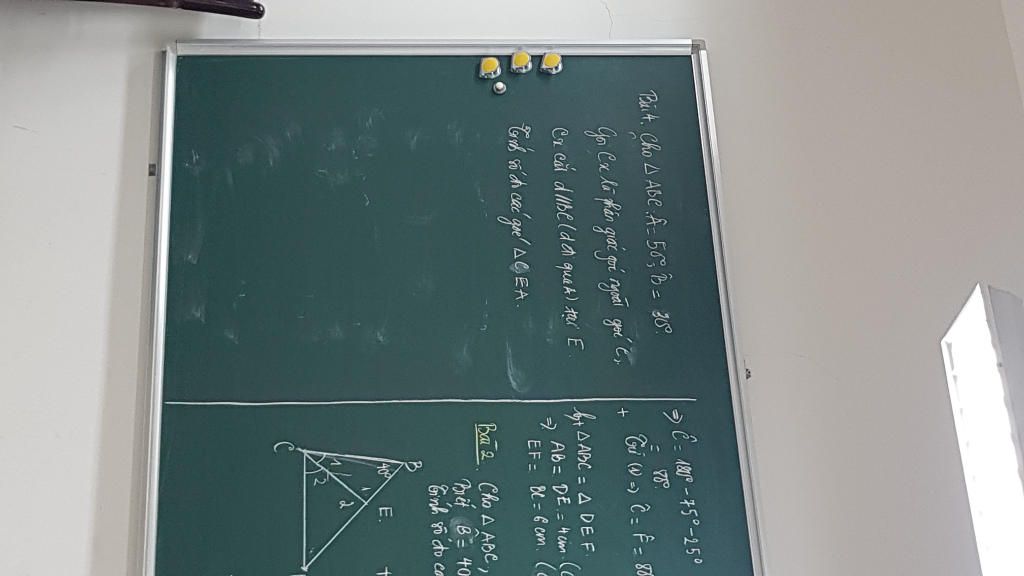 Bài 4. Cho △ABC. Â = 50°, B̂ = 30°
Gọi Cx là phân giác góc ngoài góc C,
Cx cắt d//BC (d đi qua A) tại E.
Tính số đo các góc △CEA.
⇒ Ĉ = 180° - 75° - 25°
= 80°
+ Từ (1) ⇒ Ĉ = F̂ = 80
b, + △ABC = △DEF.
⇒ AB = DE = 4cm.
EF = BC = 6cm.
Bài 2. Cho △ABC,
Biết B̂ = 40
Tính số đo
B
40°
E.
1
2
C
1
2